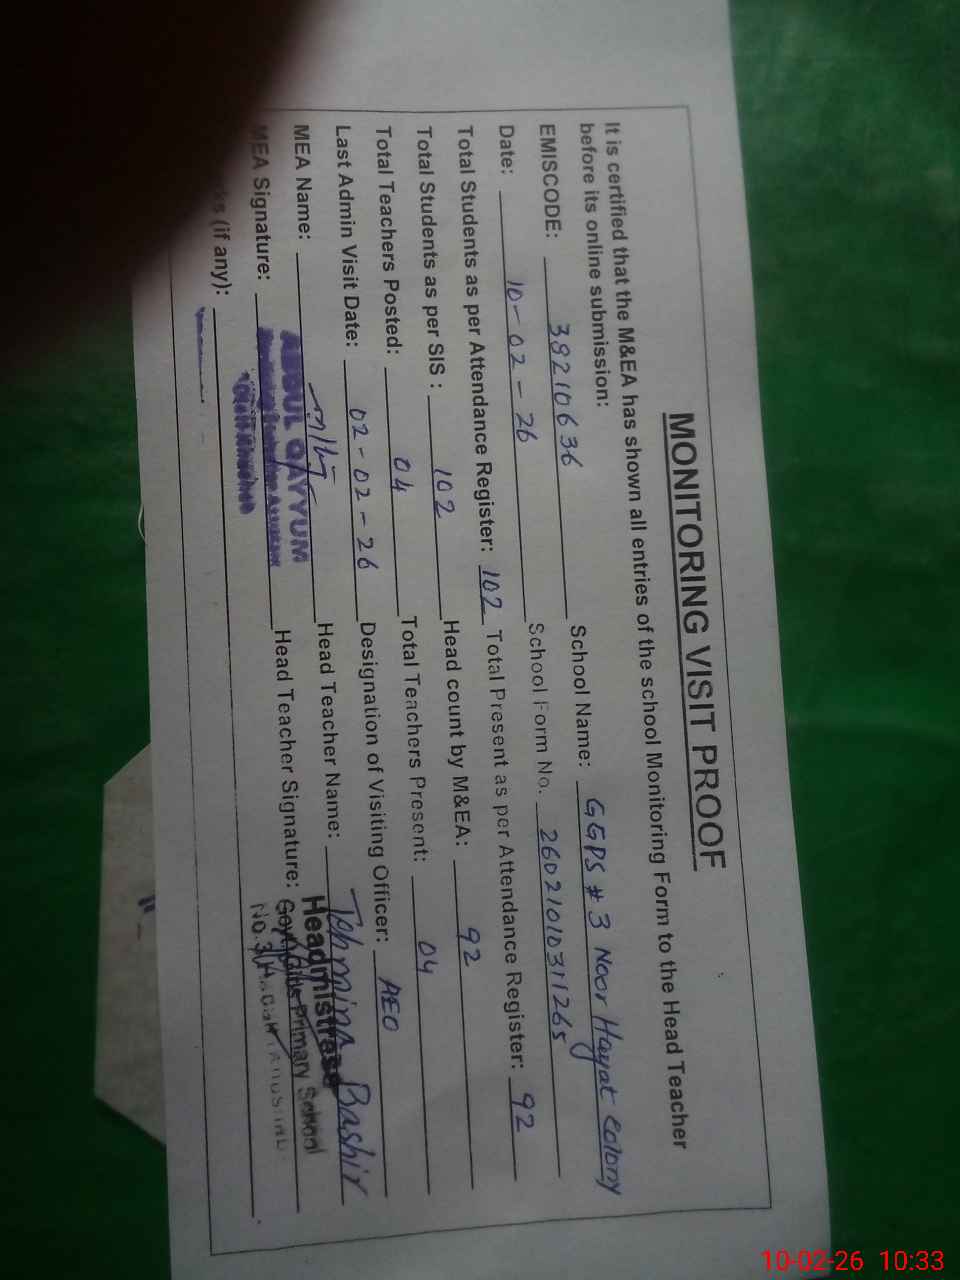 MONITORING VISIT PROOF
It is certified that the M&EA has shown all entries of the school Monitoring Form to the Head Teacher
before its online submission:
EMISCODE: 38210636 School Name: GGPS # 3 Noor Hayat Colony
Date: 10-02-26 School Form No. 26021010311265
Total Students as per Attendance Register: 102 Total Present as per Attendance Register: 92
Total Students as per SIS : 102 Head count by M&EA: 92
Total Teachers Posted: 04 Total Teachers Present: 04
Last Admin Visit Date: 02-02-26 Designation of Visiting Officer: AEO
MEA Name: Head Teacher Name: Tahmina Bashir
ABDUL QAYYUM
Headmistress
MEA Signature: Head Teacher Signature:
Govt. Girls Primary School
No. 3
(if any):
10-02-26 10:33